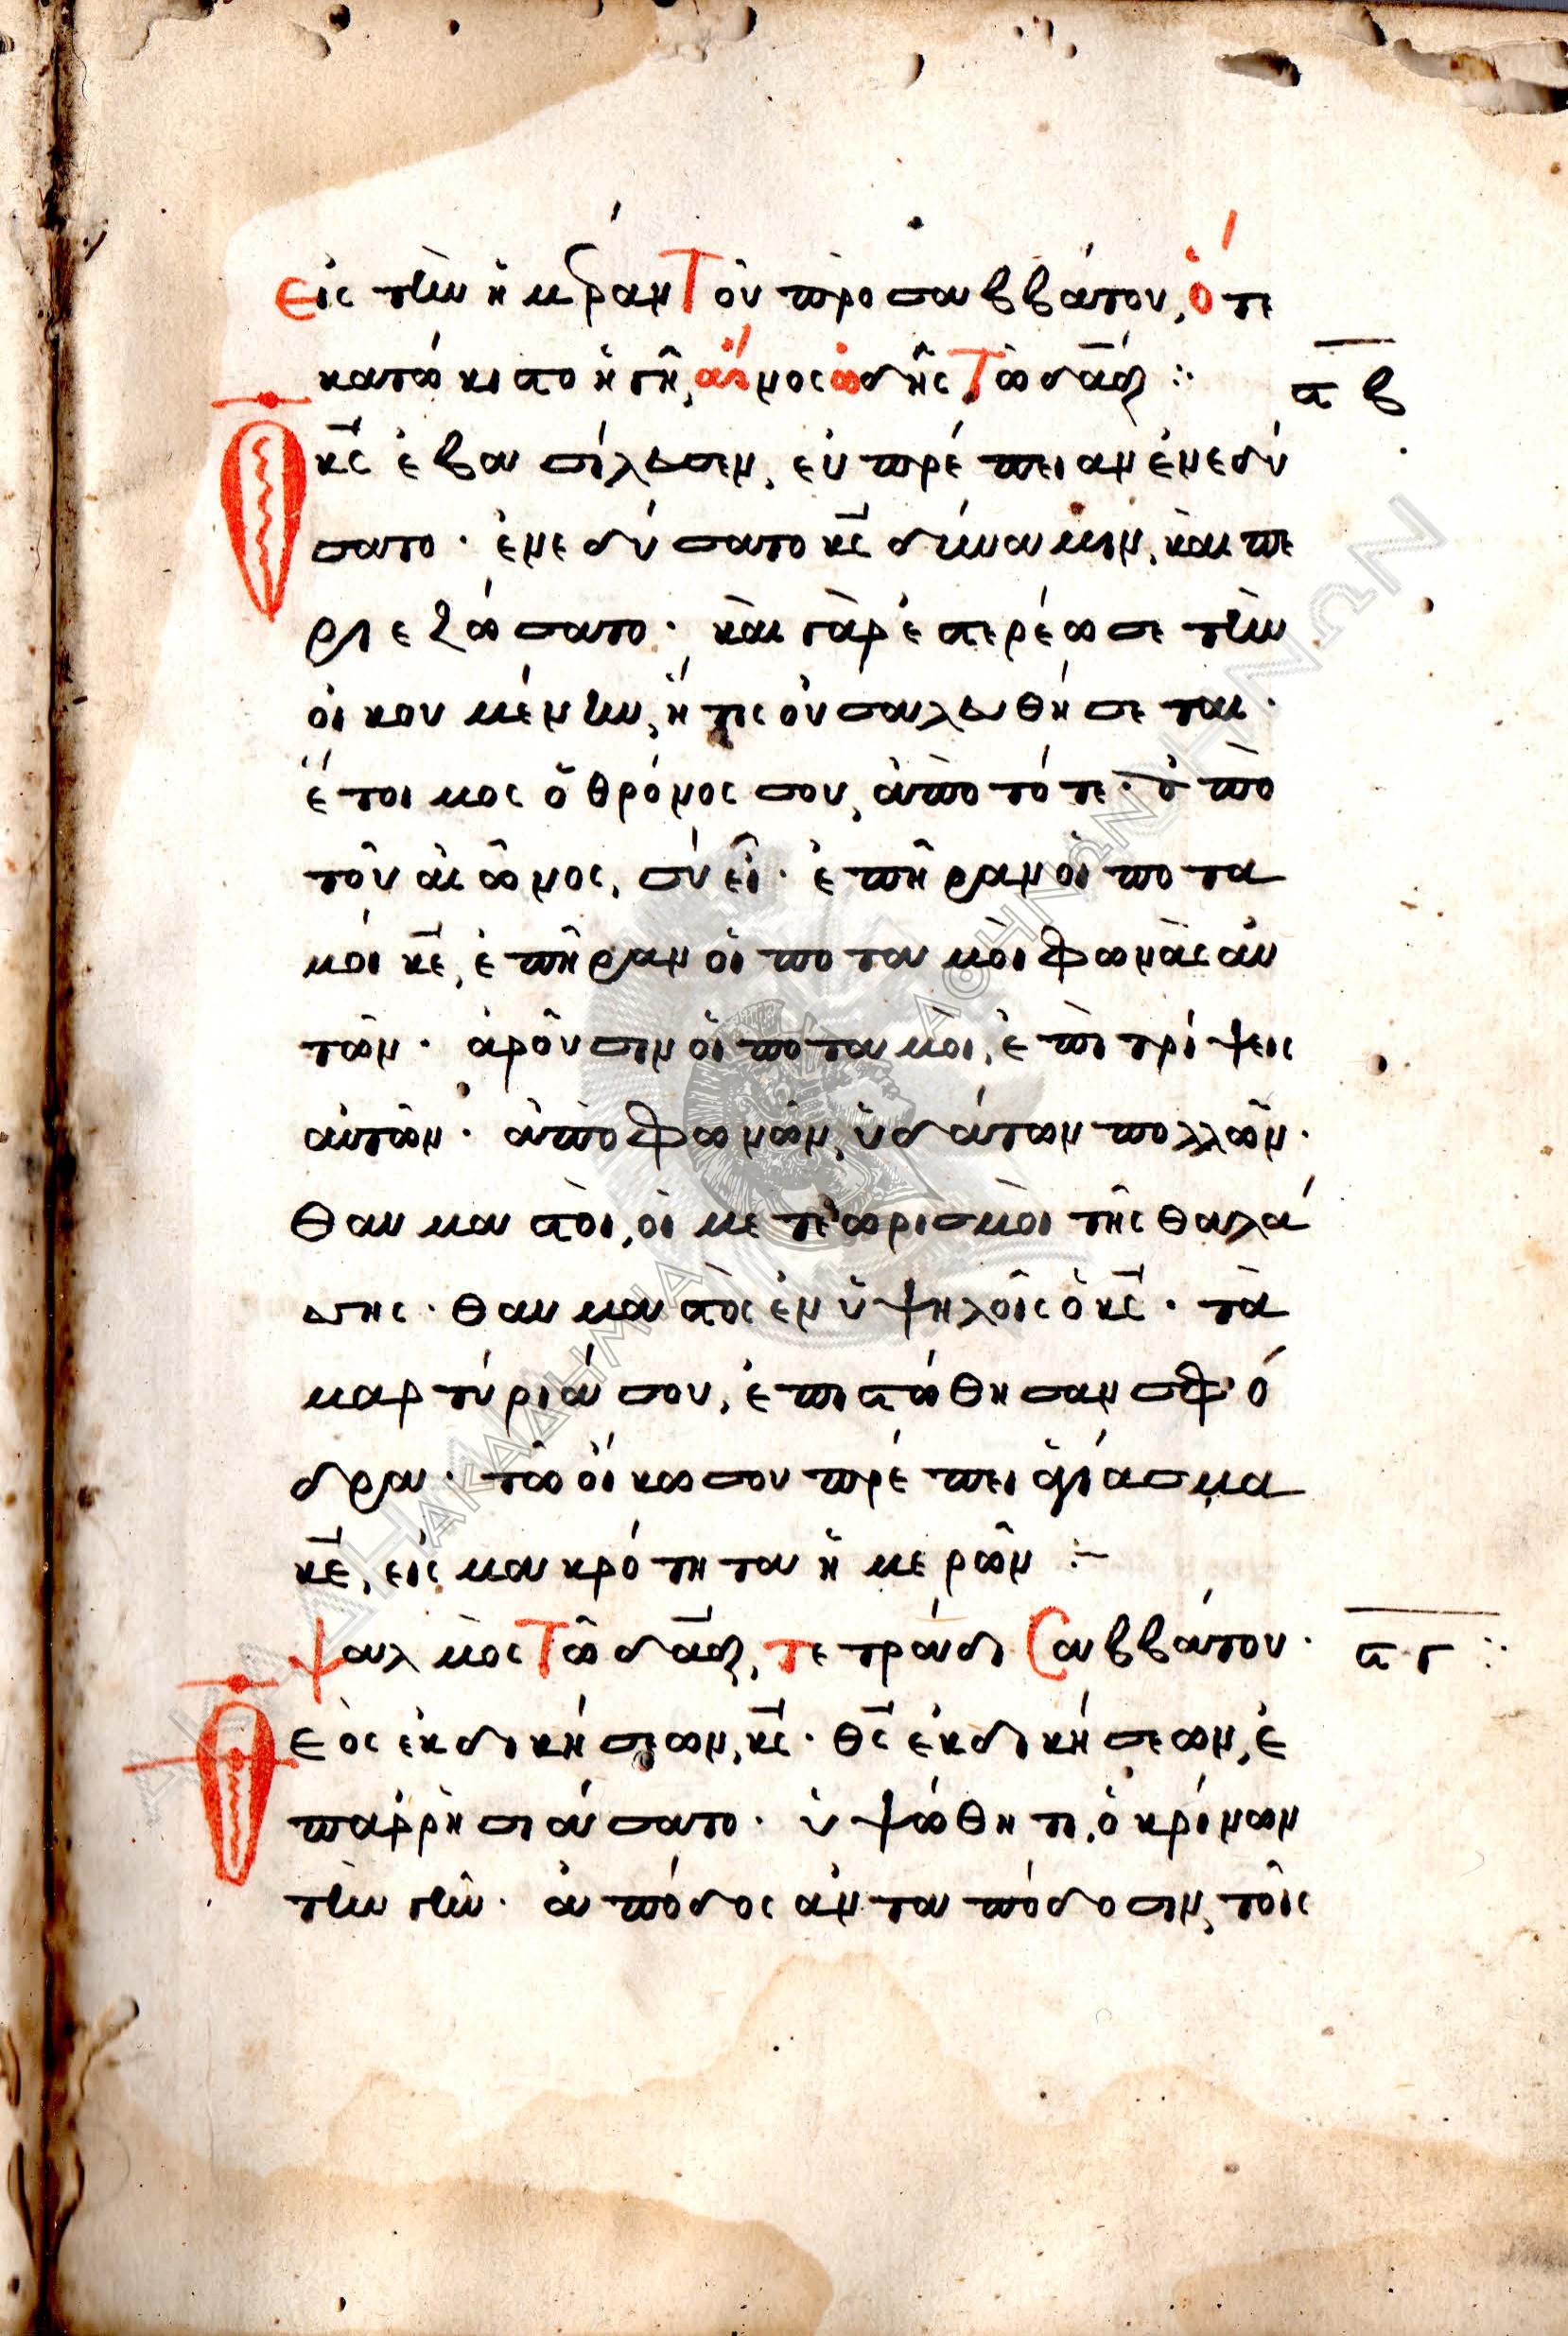 Εἰς τὴν ἡμέραν Τοῦ προσαββάτου, ὅτε
κατώκιστο ἡ γῆ, αἶνος ὠδῆς Τῶ δᾱδ :· ϟβ
Ὁ κ̅ς ἐβασίλευσεν, εὐπρέπειαν ἐνεδύ
σατο · ἐνεδύσατο κ̅ς δύναμιν, καὶ πε
ριεζώσατο · καὶ γὰρ ἐστερέωσε τὴν
οἰκουμένην, ἥτις οὐ σαλευθήσεται ·
ἕτοιμος ὁ θρόνος σου, ἀπὸ τότε · ἀπὸ
τοῦ αἰῶνος, σὺ εἶ · ἐπῆραν οἱ ποτα
μοί κ̅ε, ἐπῆραν οἱ ποταμοὶ φωνὰς αὐ
τῶν · ἀροῦσιν οἱ ποταμοὶ, ἐπιτρίψεις
αὐτῶν · ἀπὸ φωνῶν, ὑδάτων πολλῶν ·
θαυμαστοὶ, οἱ μετεωρισμοὶ τῆς θαλά
σσης · θαυμαστὸς ἐν ὑψηλοῖς ὁ κ̅ς · τὰ
μαρτύριά σου, ἐπιστώθησαν σφό
δρα · τῶ οἴκω σου πρέπει ἁγίασμα
κ̅ε, εἰς μακρότητα ἡμερῶν :–
Ψαλμὸς Τῶ δᾱδ, τετράδι Σαββάτου · ϟγ :·
Θεὸς ἐκδικήσεων, κ̅ς · θ̅ς ἐκδικήσεων, ἐ
παρρησιάσατο · ὑψώθητι, ὁ κρίνων
τὴν γῆν · ἀπόδος ἀνταπόδοσιν, τοῖς
ΑΚΑΔΗΜΙΑ ΑΘΗΝΩΝ